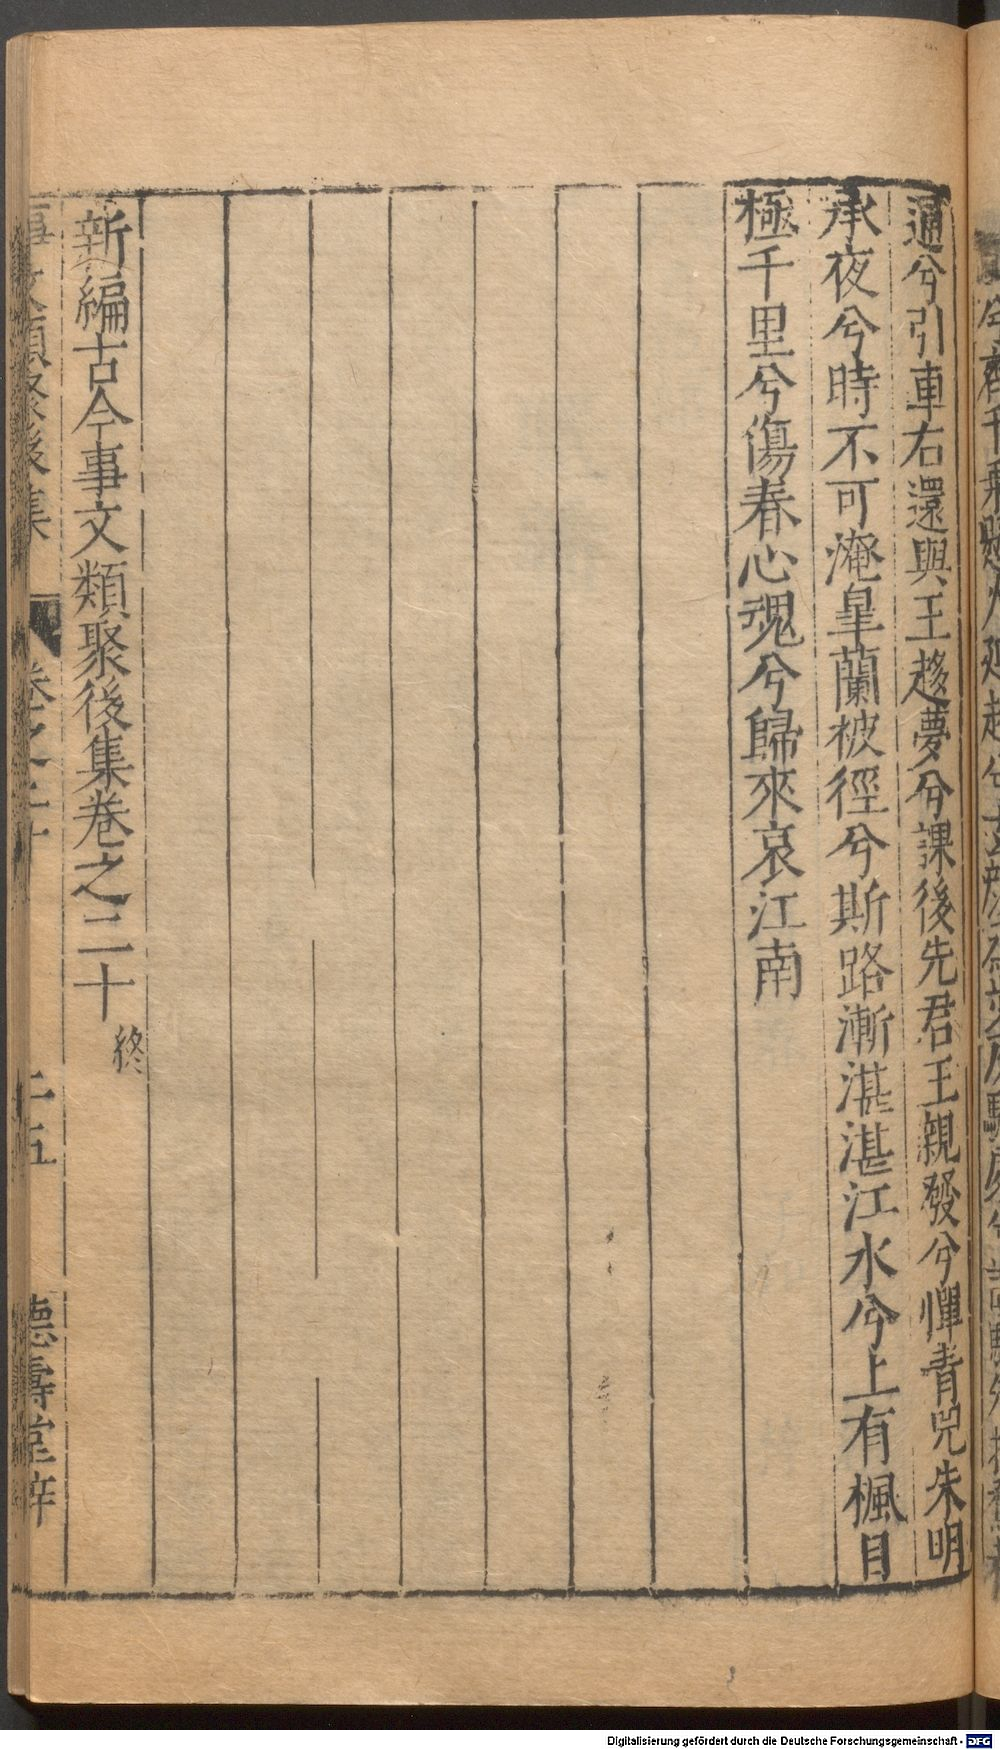 通兮引車右還與王趍夢兮課後先君王親發兮憚青兕朱明
承夜兮時不可淹皐蘭被徑兮斯路漸湛湛江水兮上有楓目
極千里兮傷春心魂兮歸來哀江南
新編古今事文類聚後集卷之二十 終
事文類聚後集 卷之二十 二十五 德壽堂梓
Digitalisierung gefördert durch die Deutsche Forschungsgemeinschaft - DFG